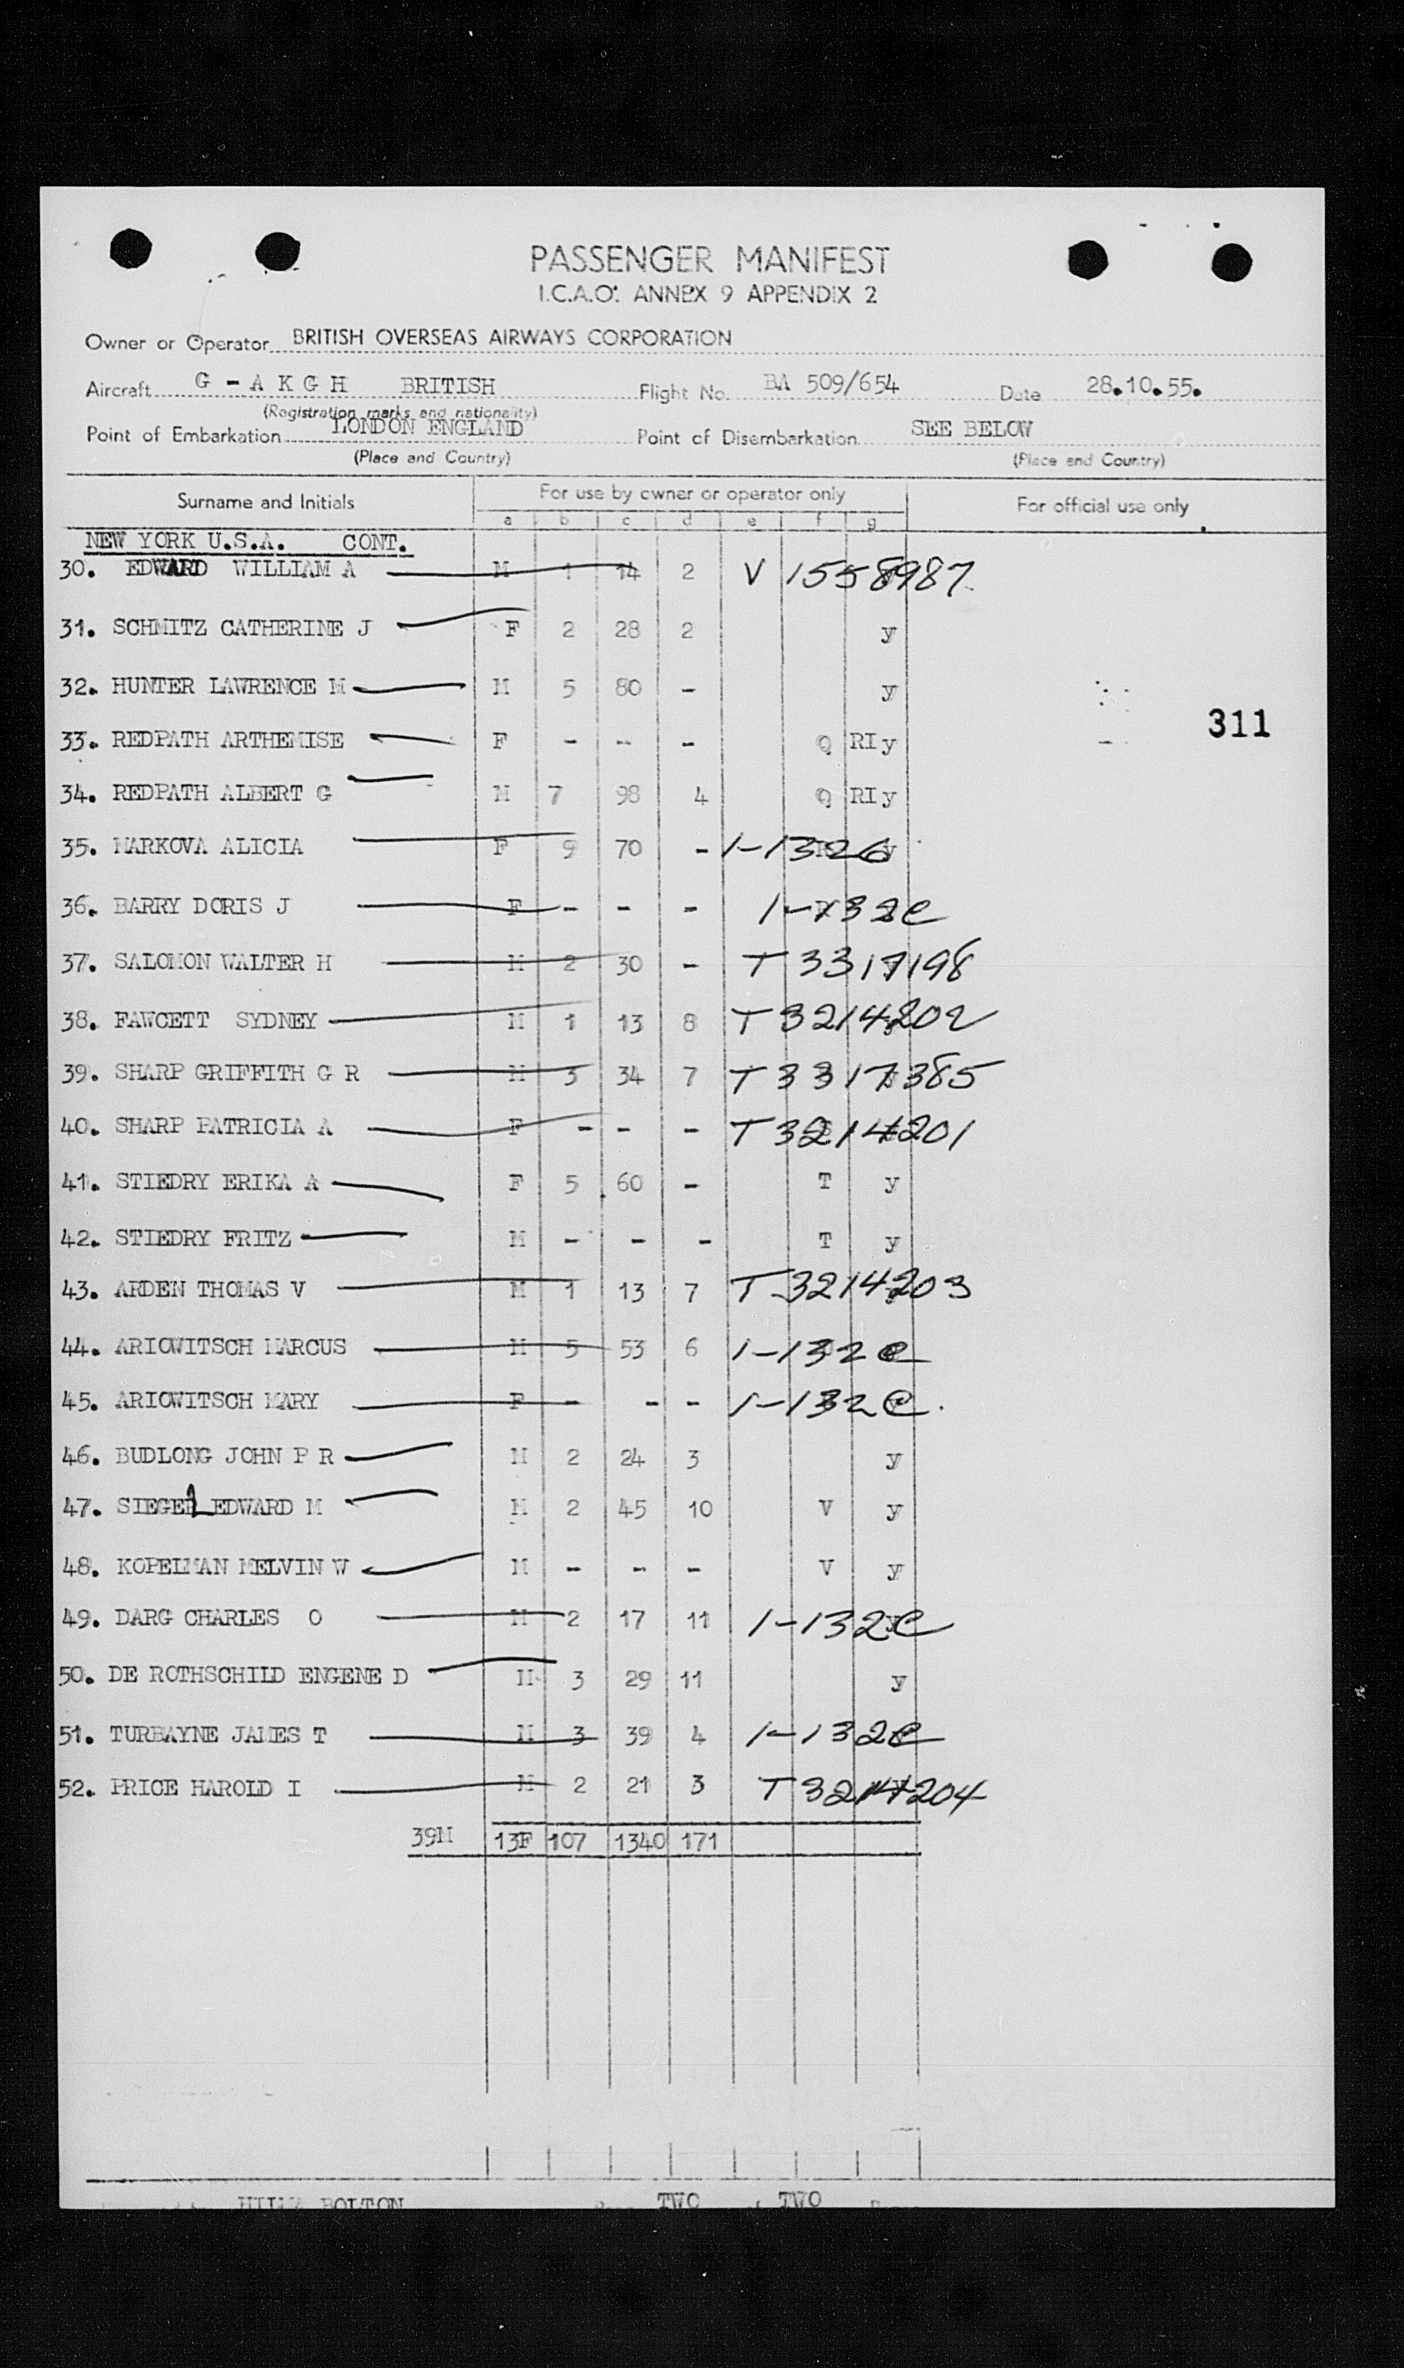 PASSENGER MANIFEST
I.C.A.O. ANNEX 9 APPENDIX 2
Owner or Operator BRITISH OVERSEAS AIRWAYS CORPORATION
Aircraft G - A K G H BRITISH Flight No. BA 509/654 Date 28.10.55.
(Registration marks and nationality)
Point of Embarkation LONDON ENGLAND Point of Disembarkation SEE BELOW
(Place and Country) (Place and Country)
Surname and Initials For use by owner or operator only For official use only
a b c d e f g
NEW YORK U.S.A. CONT.
30. EDWARD WILLIAM A M 1 14 2 V 1558987
31. SCHMITZ CATHERINE J F 2 28 2 y
32. HUNTER LAWRENCE M M 5 80 - y
311
33. REDPATH ARTHEMISE F - - - Q RI y
34. REDPATH ALBERT G M 7 98 4 Q RI y
35. MARKOVA ALICIA F 9 70 - 1-132c
36. BARRY DORIS J F - - - 1-132c
37. SALOMON WALTER H M 2 30 - T 3317198
38. FAWCETT SYDNEY M 1 13 8 T 3214202
39. SHARP GRIFFITH G R M 3 34 7 T 3317385
40. SHARP PATRICIA A F - - - T 3214201
41. STIEDRY ERIKA A F 5 60 - T y
42. STIEDRY FRITZ M - - - T y
43. ARDEN THOMAS V M 1 13 7 T 3214203
44. ARIOWITSCH MARCUS M 5 53 6 1-132c
45. ARIOWITSCH MARY F - - - 1-132c.
46. BUDLONG JOHN P R M 2 24 3 y
47. SIEGEL EDWARD M M 2 45 10 V y
48. KOPELMAN MELVIN W M - - - V y
49. DARG CHARLES O M 2 17 11 1-132c
50. DE ROTHSCHILD ENGENE D M 3 29 11 y
51. TURBAYNE JAMES T M 3 39 4 1-132c
52. PRICE HAROLD I M 2 21 3 T 3214204
39M 13F 107 1340 171
BOLTON TWO TWO